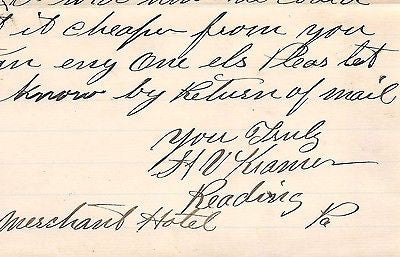 t it cheaper from you
an eny One els Pleas let
know by Return of mail
you Truly
H V Kramer
Reading
Merchant Hotel Pa